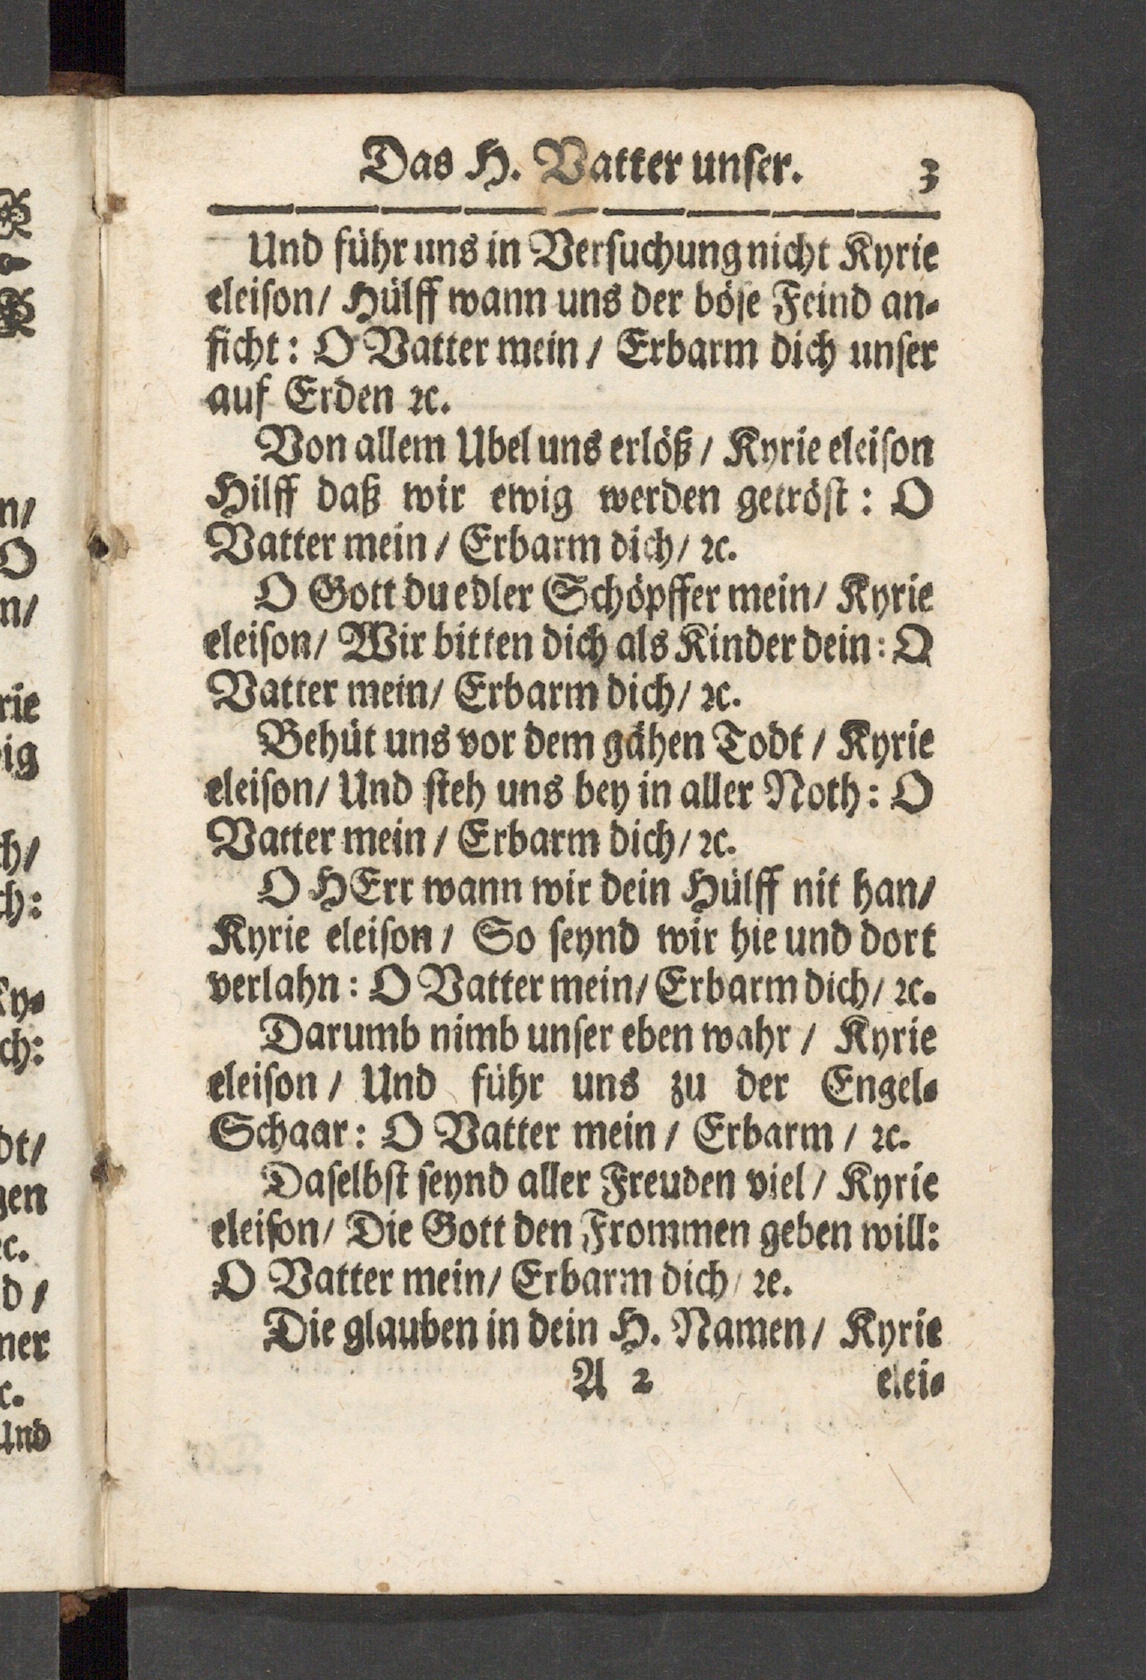 Das H. Vatter unser. 3
Und führ uns in Versuchung nicht Kyrie
eleison/ Hülff wann uns der böse Feind an-
ficht: O Vatter mein / Erbarm dich unser
auf Erden ꝛc.
Von allem Ubel uns erlöß / Kyrie eleison
Hilff daß wir ewig werden getröst: O
Vatter mein / Erbarm dich/ ꝛc.
O Gott du edler Schöpffer mein/ Kyrie
eleison/ Wir bitten dich als Kinder dein: O
Vatter mein/ Erbarm dich/ ꝛc.
Behüt uns vor dem gähen Todt / Kyrie
eleison/ Und steh uns bey in aller Noth: O
Vatter mein / Erbarm dich/ ꝛc.
O HErr wann wir dein Hülff nit han/
Kyrie eleison / So seynd wir hie und dort
verlahn: O Vatter mein/ Erbarm dich/ ꝛc.
Darumb nimb unser eben wahr / Kyrie
eleison / Und führ uns zu der Engel-
Schaar: O Vatter mein / Erbarm / ꝛc.
Daselbst seynd aller Freuden viel / Kyrie
eleison/ Die Gott den Frommen geben will:
O Vatter mein/ Erbarm dich/ ꝛe.
Die glauben in dein H. Namen / Kyrie
A 2 elei-